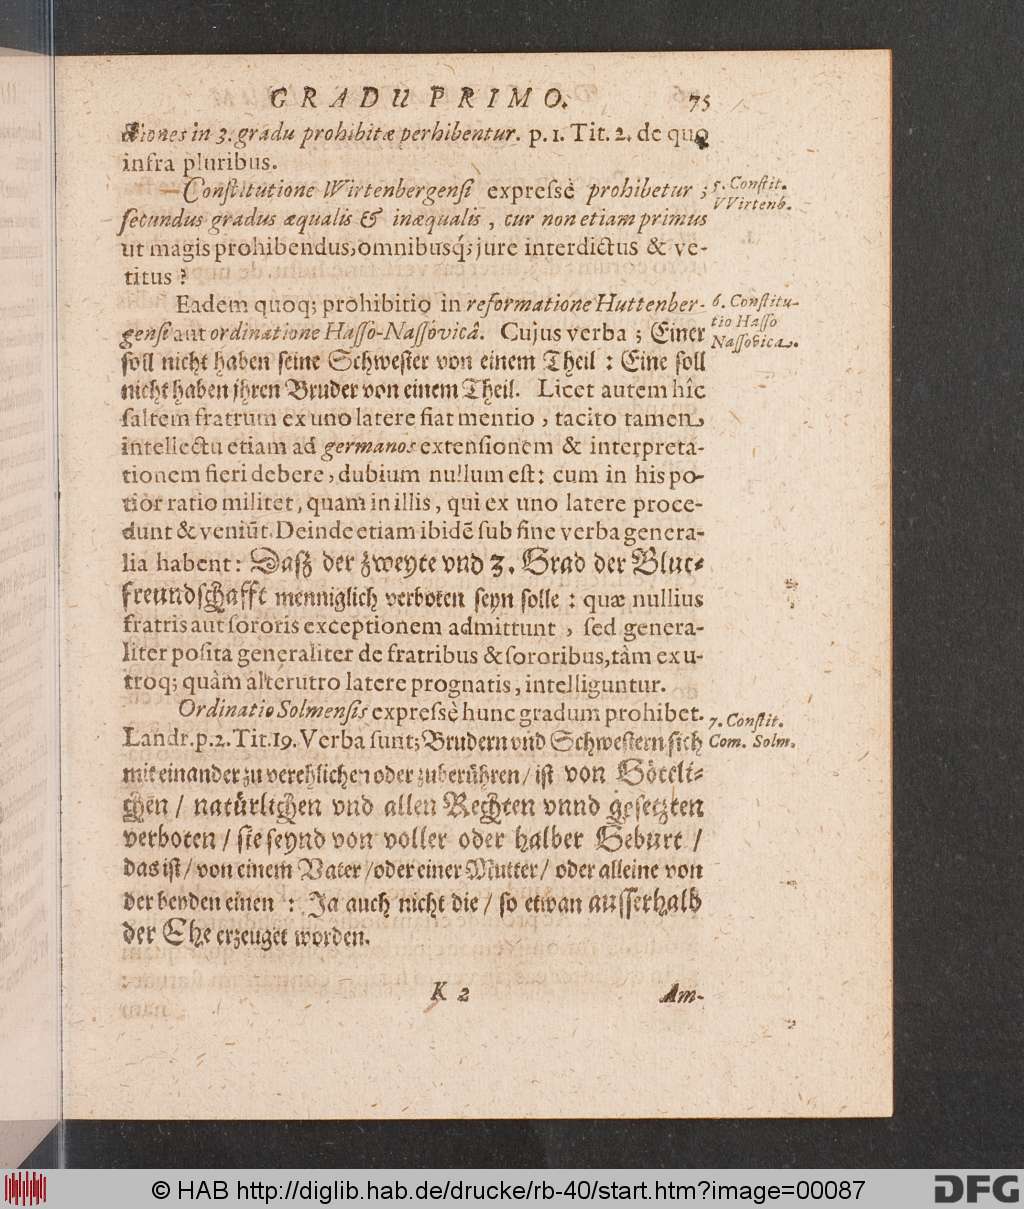 GRADU PRIMO. 75
ctiones in 3. gradu prohibitæ perhibentur. p. 1. Tit. 2. de quo
infra pluribus.
Constitutione Wirtenbergensi expresse prohibetur ;
secundus gradus æqualis & inæqualis, cur non etiam primus
ut magis prohibendus, omnibusq́; jure interdictus & ve-
titus ?
5. Constit.
VVirtenb.
Eadem quoq; prohibitio in reformatione Huttenber-
gensi aut ordinatione Hasso-Nassovicâ. Cujus verba ; Einer
soll nicht haben seine Schwester von einem Theil : Eine soll
nicht haben jhren Bruder von einem Theil. Licet autem hîc
saltem fratrum ex uno latere fiat mentio, tacito tamen
intellectu etiam ad germanos extensionem & interpreta-
tionem fieri debere, dubium nullum est: cum in his po-
tior ratio militet, quam in illis, qui ex uno latere proce-
dunt & veniũt. Deinde etiam ibidẽ sub fine verba genera-
lia habent: Dasz der zweyte vnd 3. Grad der Blut-
freundschafft menniglich verboten seyn solle : quæ nullius
fratris aut sororis exceptionem admittunt, sed genera-
liter posita generaliter de fratribus & sororibus, tàm ex u-
troq; quàm alterutro latere prognatis, intelliguntur.
6. Constitu-
tio Hasso
Nassovica.
Ordinatio Solmensis expressè hunc gradum prohibet.
Landr. p. 2. Tit. 19. Verba sunt; Brudern vnd Schwestern sich
mit einander zu verehlichen oder zuberühren / ist von Götli-
chen / natürlichen vnd allen Rechten vnnd gesetzten
verboten / sie seynd von voller oder halber Geburt /
das ist / von einem Vater / oder einer Mutter / oder alleine von
der beyden einen : Ja auch nicht die / so etwan ausserhalb
der Ehe erzeuget worden.
7. Constit.
Com. Solm.
K 2 Am-
© HAB http://diglib.hab.de/drucke/rb-40/start.htm?image=00087
DFG